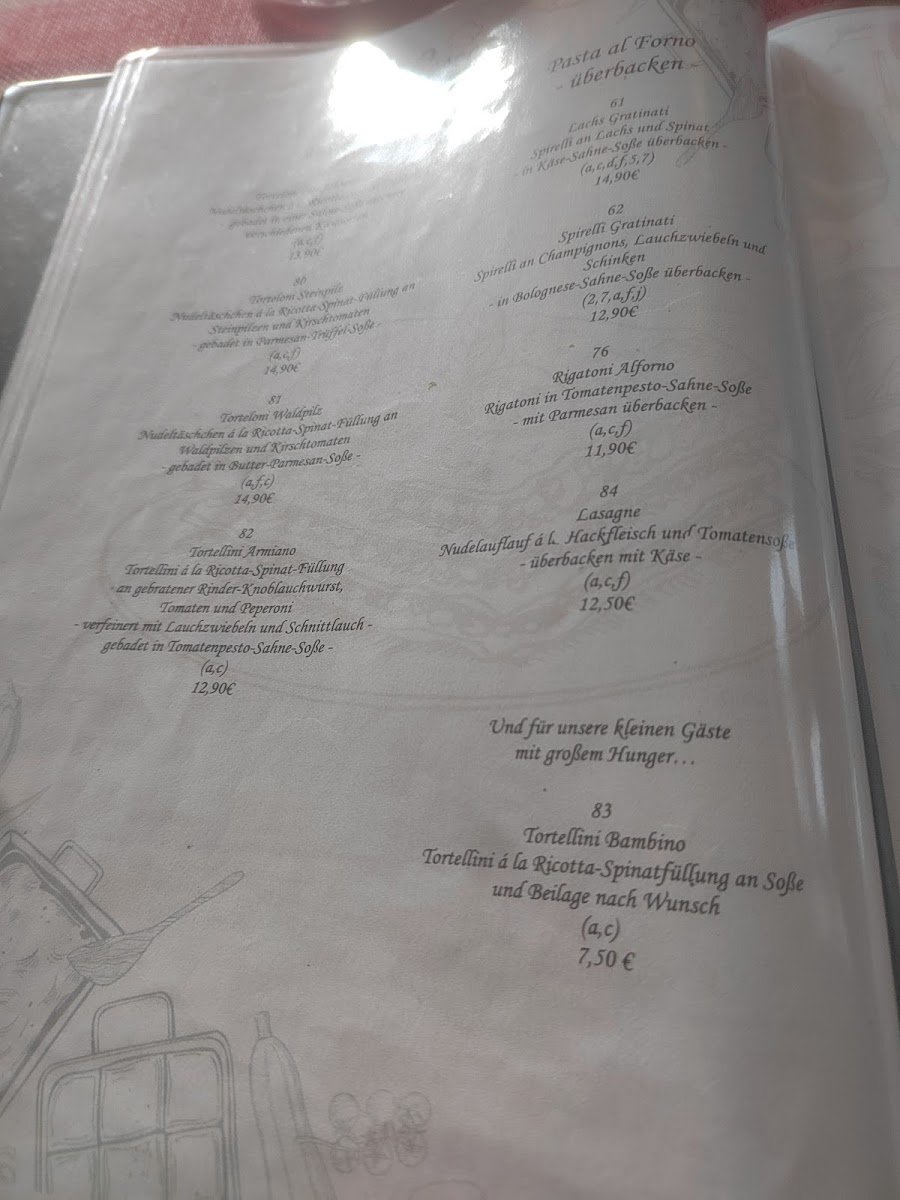 Nudeltäschchen á
gebadet in einer Sahne-Soße
verschiedenen
(a,c,f)
13,90€
86
Torteloni Steinpilz
Nudeltäschchen á la Ricotta-Spinat-Füllung an
Steinpilzen und Kirschtomaten
- gebadet in Parmesan-Trüffel-Soße -
(a,c,f)
14,90€
81
Torteloni Waldpilz
Nudeltäschchen á la Ricotta-Spinat-Füllung an
Waldpilzen und Kirschtomaten
- gebadet in Butter-Parmesan-Soße -
(a,f,c)
14,90€
82
Tortellini Armiano
Tortellini á la Ricotta-Spinat-Füllung
- an gebratener Rinder-Knoblauchwurst,
Tomaten und Peperoni
- verfeinert mit Lauchzwiebeln und Schnittlauch -
gebadet in Tomatenpesto-Sahne-Soße -
(a,c)
12,90€
Pasta al Forno
- überbacken -
61
Lachs Gratinati
Spirelli an Lachs und Spinat
- in Käse-Sahne-Soße überbacken -
(a,c,d,f,5,7)
14,90€
62
Spirelli Gratinati
Spirelli an Champignons, Lauchzwiebeln und
Schinken
- in Bolognese-Sahne-Soße überbacken -
(2,7,a,f,j)
12,90€
76
Rigatoni Alforno
Rigatoni in Tomatenpesto-Sahne-Soße
- mit Parmesan überbacken -
(a,c,f)
11,90€
84
Lasagne
Nudelauflauf á l. Hackfleisch und Tomatensoße
- überbacken mit Käse -
(a,c,f)
12,50€
Und für unsere kleinen Gäste
mit großem Hunger...
83
Tortellini Bambino
Tortellini á la Ricotta-Spinatfüllung an Soße
und Beilage nach Wunsch
(a,c)
7,50 €